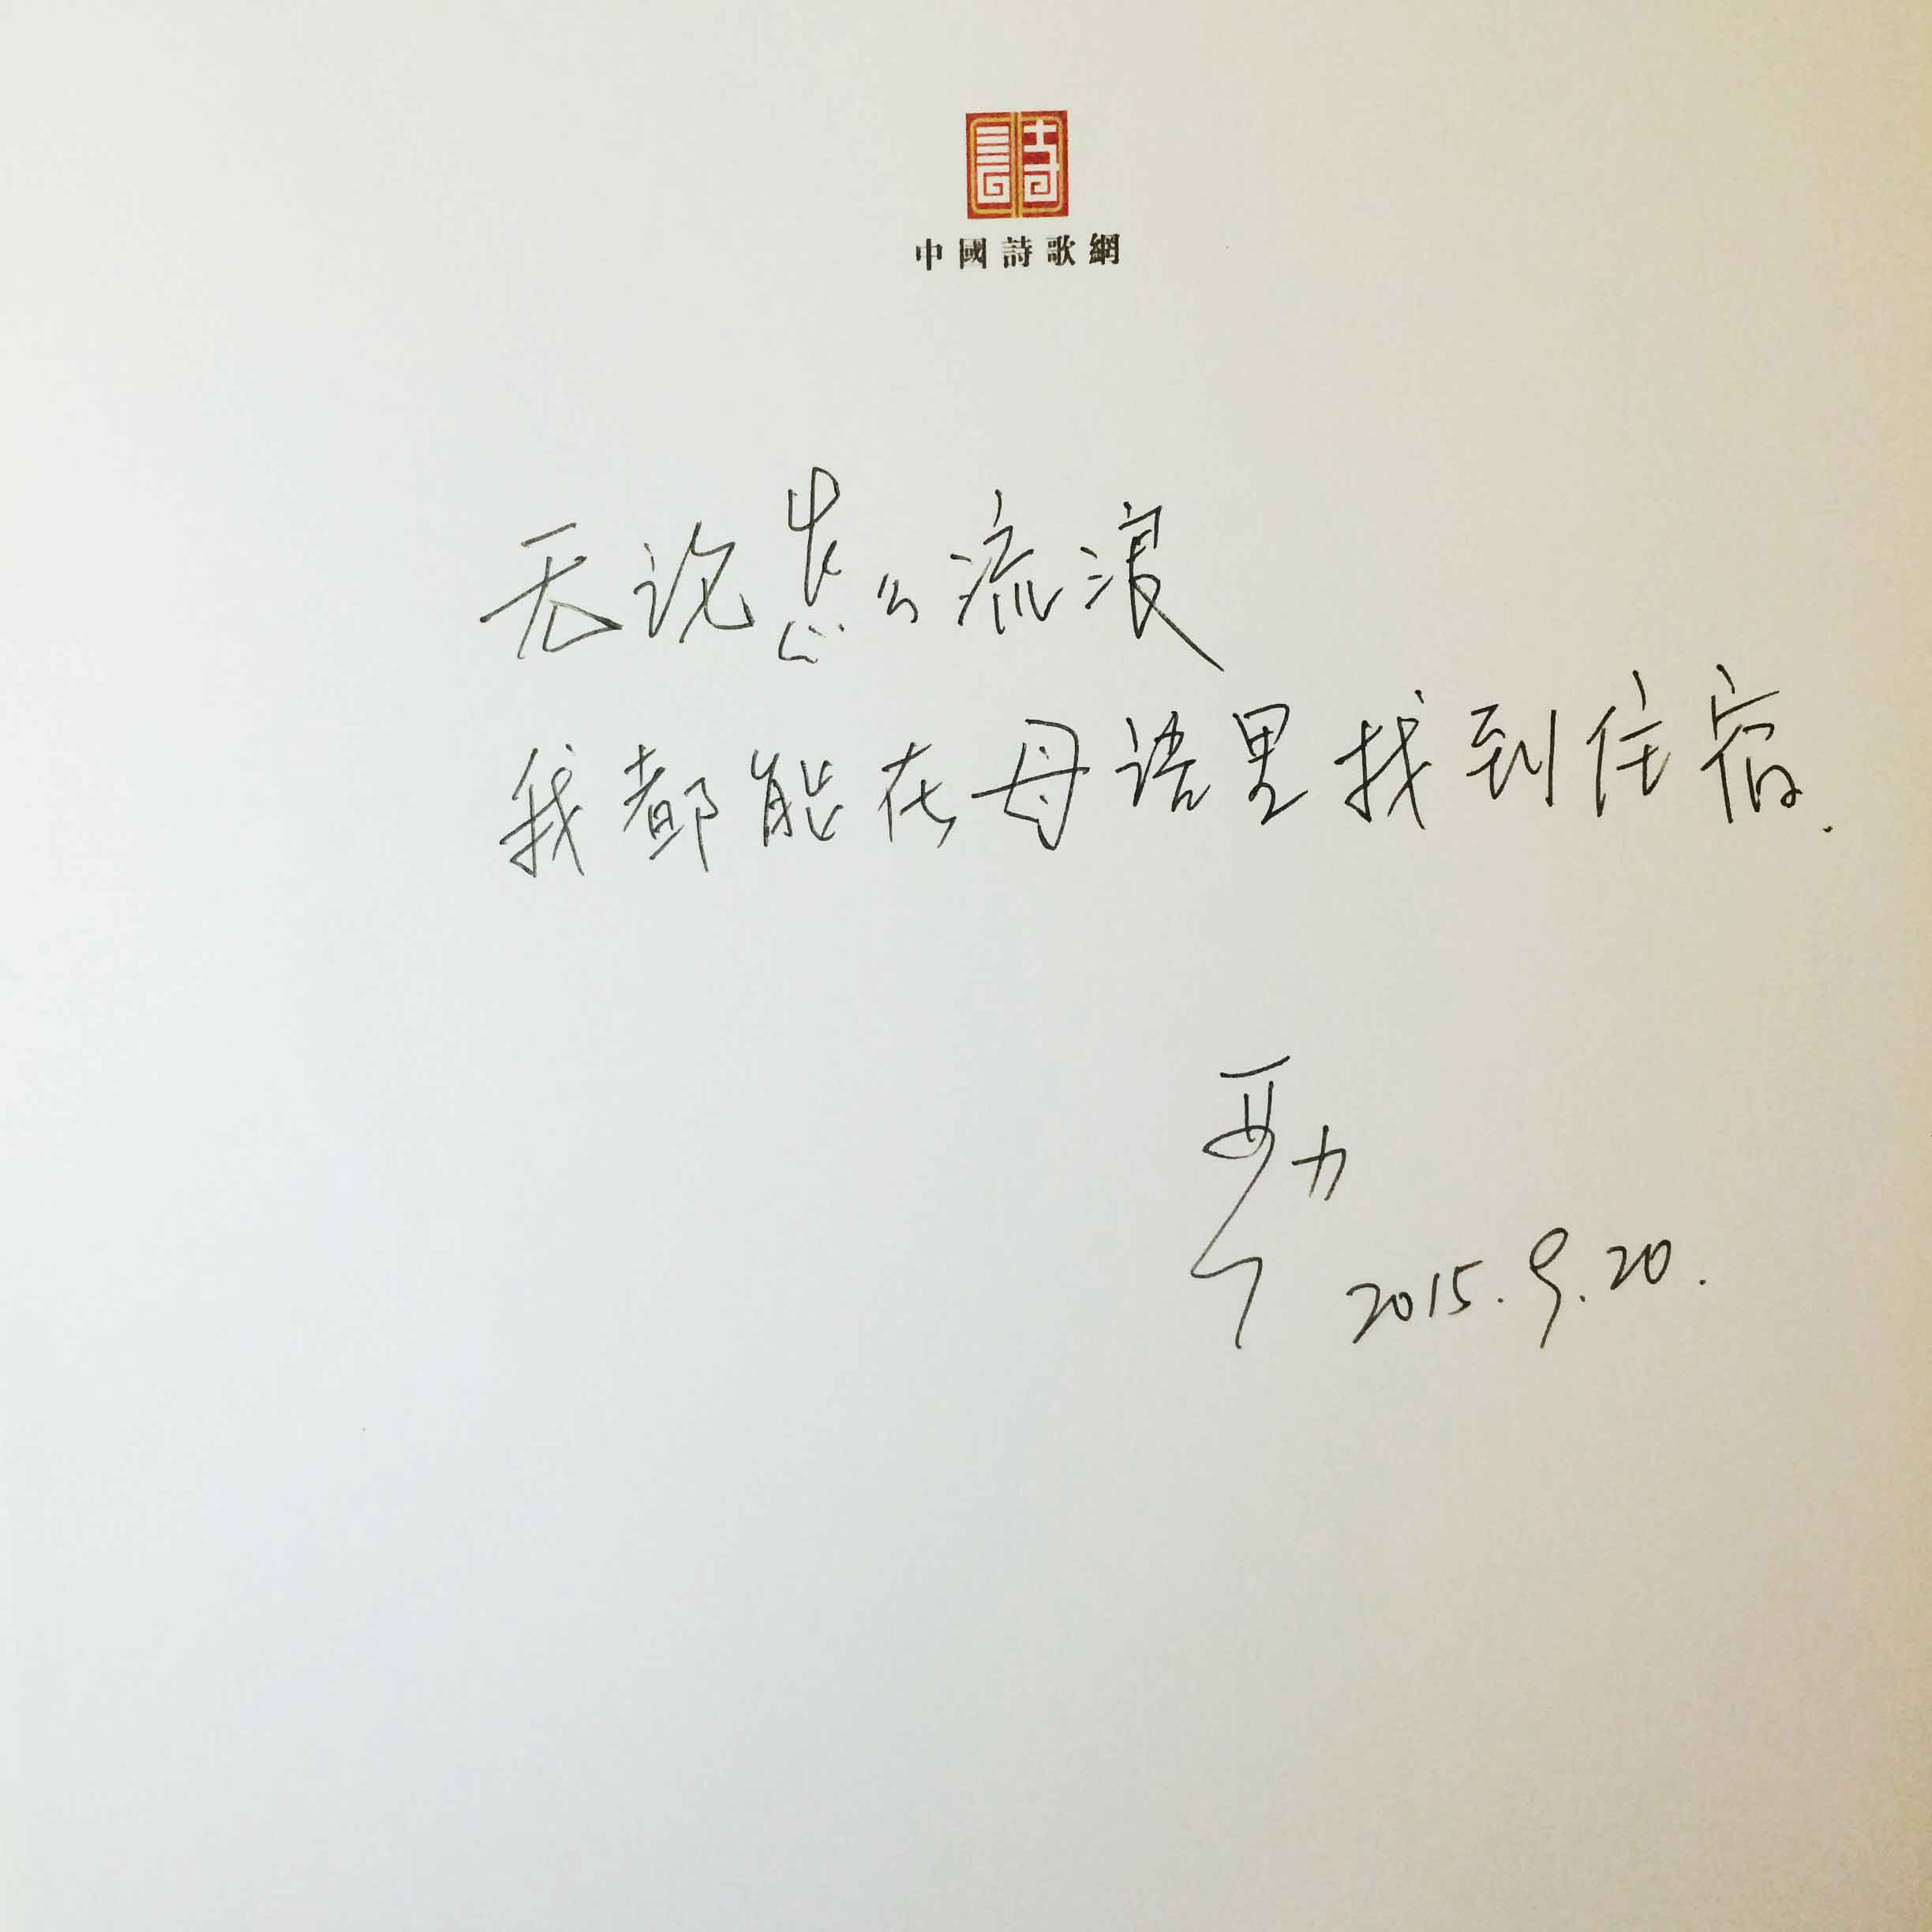 詩
中國詩歌網
无论怎么流浪
我都能在母语里找到住宿.
严力
2015.9.20.